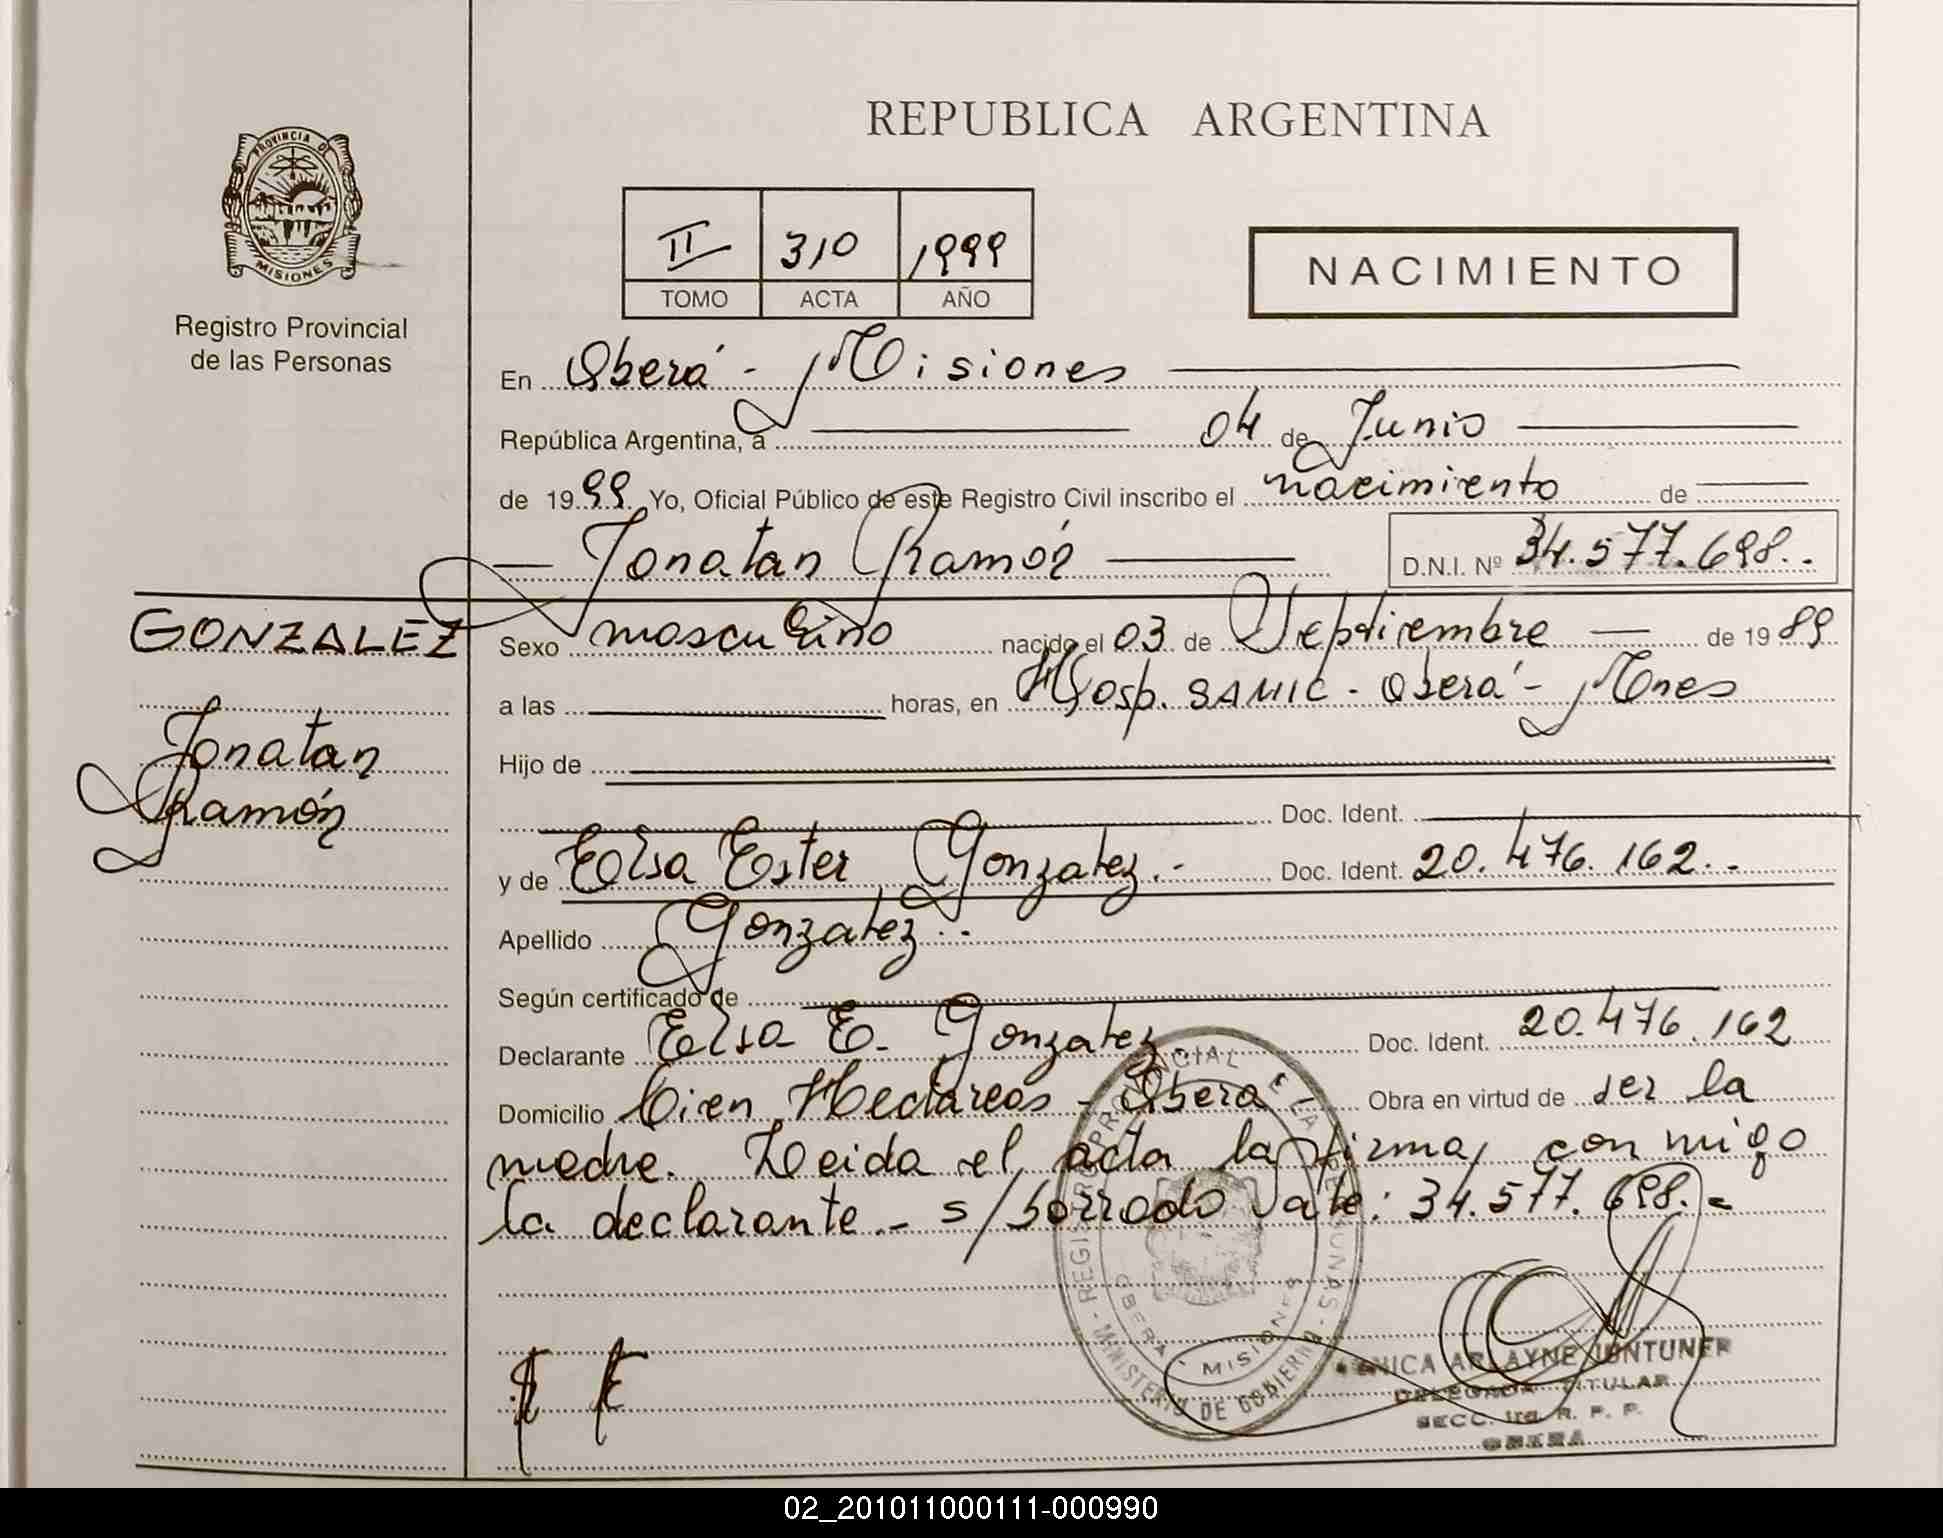 REPUBLICA ARGENTINA
PROVINCIA DE
MISIONES
Registro Provincial
de las Personas
II 310 1999
TOMO ACTA AÑO
NACIMIENTO
En Oberá - Misiones
República Argentina, a 04 de Junio
de 1999 Yo, Oficial Público de este Registro Civil inscribo el nacimiento de
Jonatan Ramón D.N.I. Nº 34.577.698..
GONZALEZ
Jonatan
Ramón
Sexo masculino nacido el 03 de Septiembre de 1989
a las horas, en Hosp. SAMIC - Oberá - Mnes
Hijo de
Doc. Ident.
y de Elsa Ester Gonzalez.- Doc. Ident. 20.476.162..
Apellido Gonzalez..
Según certificado de
Declarante Elsa E. Gonzalez.- Doc. Ident. 20.476.162
Domicilio Cien Hectareas - Oberá - Obra en virtud de ser la
madre. Leida el acta la firma, con migo
la declarante.- s/borrado Vale: 34.577.698.=
REGISTRO PROVINCIAL DE LAS PERSONAS - MINISTERIO DE GOBIERNO
OBERA MISIONES
ARLAYNE
DELEGADA TITULAR
SECC. 1ra. R. P. P.
OBERA
02_201011000111-000990